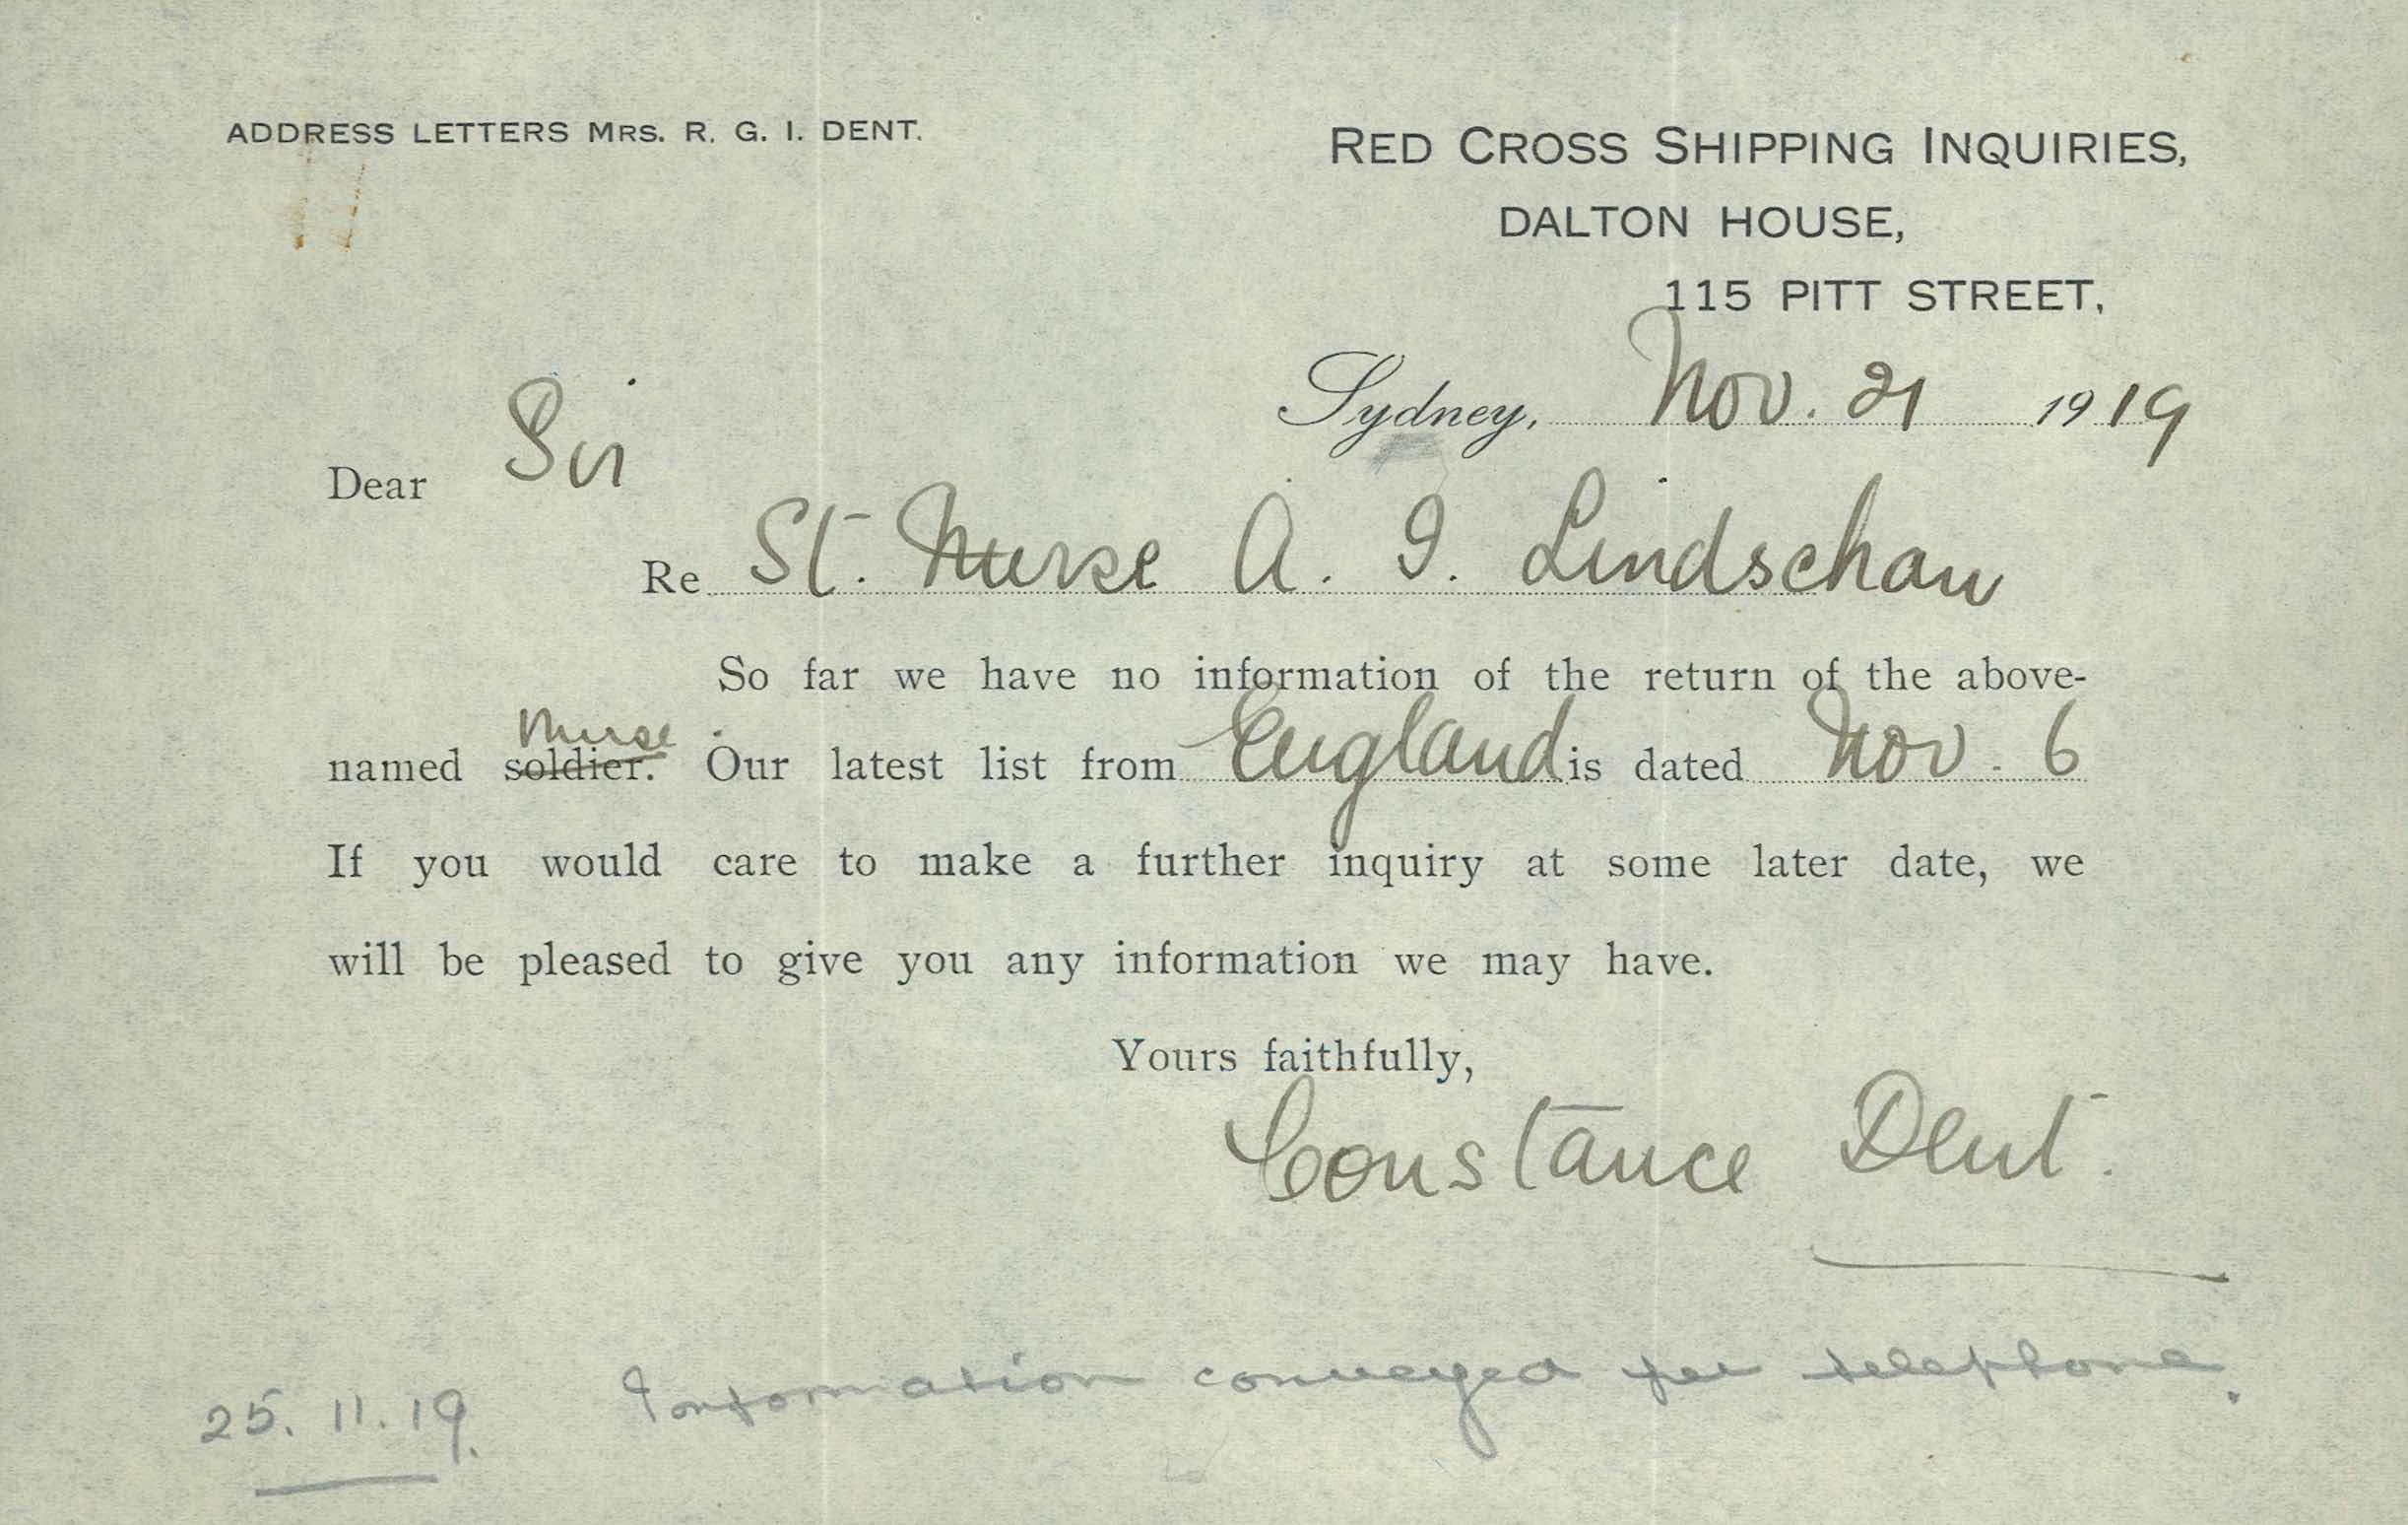 ADDRESS LETTERS MRS. R. G. I. DENT.
RED CROSS SHIPPING INQUIRIES,
DALTON HOUSE,
115 PITT STREET,
Sydney, Nov. 21 1919
Dear Sir
Re St. Nurse A. I. Lindschau
So far we have no information of the return of the above-
Nurse
named soldier. Our latest list from England is dated Nov. 6
If you would care to make a further inquiry at some later date, we
will be pleased to give you any information we may have.
Yours faithfully,
Constance Dent.
25. 11. 19. Information conveyed per telephone.